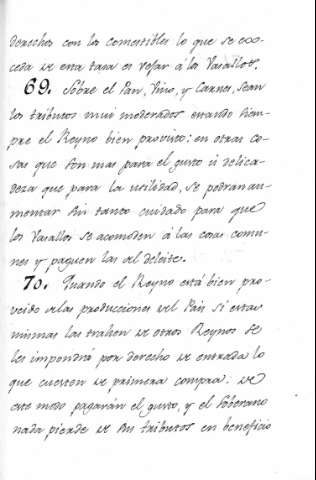 derechos con los comestibles lo que se exce-
ceda de esta tasa es vejar á los Vasallos.
69. Sobre el Pan, Vino, y Carnes, sean
los tributos mui moderados estando siem-
pre el Reyno bien provisto: en otras co-
sas que son mas para el gusto ú delica-
deza que para la utilidad, se podran au-
mentar sin tanto cuidado para que
los Vasallos se acomoden á las cosas comu-
nes y paguen las al deleite.
70. Quando el Reyno está bien pro-
veido de las producciones del Pais si estas
mismas las trahen de otros Reynos se
les impondrá por derecho de entrada lo
que cuesten de primera compra: de
este modo pagarán el gusto, y el Soberano
nada pierde de sus tributos en beneficio